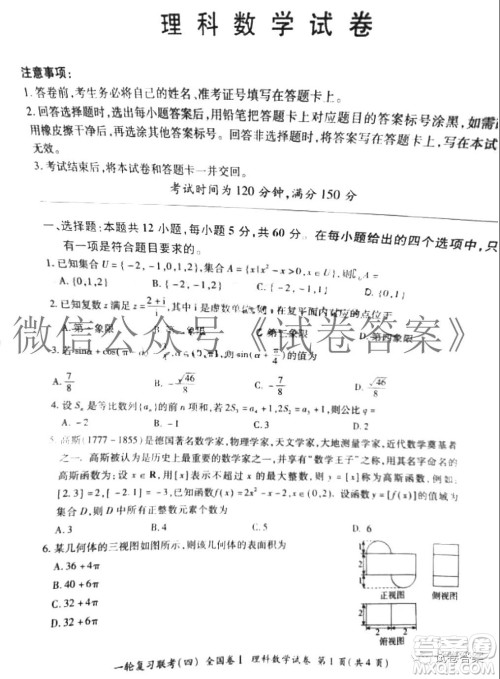 理科数学试卷
注意事项：
1. 答卷前，考生务必将自己的姓名、准考证号填写在答题卡上。
2. 回答选择题时，选出每小题答案后，用铅笔把答题卡上对应题目的答案标号涂黑，如需
用橡皮擦干净后，再选涂其他答案标号。回答非选择题时，将答案写在答题卡上，写在本试
无效。
3. 考试结束后，将本试卷和答题卡一并交回。
考试时间为 120 分钟，满分 150 分
一、选择题：本题共 12 小题，每小题 5 分，共 60 分。在每小题给出的四个选项中，只
有一项是符合题目要求的。
1. 已知集合 U={-2,-1,0,1,2}，集合 A={x|x²-x>0,
A. {0,1,2} B. {-2,-1,2} C. {0,1} D. {-2,-1}
2. 已知复数 z 满足 z=(2+i)/ ，其中 i 是虚数单位，则 z 在复平面内对应的点位于
A. 第一象限 第四象限
微信公众号《试卷答案》
3. 若 的值为
A. 7/8 B. -√46/8 C. -7/8 D. √46/8
4. 设 Sₙ 是等比数列{aₙ}的前 n 项和，若 2S₃=aₙ+ ，则公比 q=
A. -2 B. -1 C. 1 D. 2
5. 高斯(1777-1855)是德国著名数学家，物理学家，天文学家，大地测量学家，近代数学奠基者
之一。高斯被认为是历史上最重要的数学家之一，并享有“数学王子”之称，用其名字命名的
高斯函数为：设 x∈R，用[x]表示不超过 x 的最大整数，则 y=[x]称为高斯函数，例如
[2.3]=2，[-1.5]=-2. 设函数 y=[f(x)]的值域为
集合 D，则 D 中所有正整数元素个数为
A. 3 B. 4 C. 5 D. 6
6. 某几何体的三视图如图所示，则该几何体的表面积为
A. 36+4π
B. 40+6π
C. 32+4π
D. 32+6π
正视图 侧视图
俯视图
试卷答案
一轮复习联考(四) 全国卷Ⅰ 理科数学试卷 第 1 页(共 4 页)